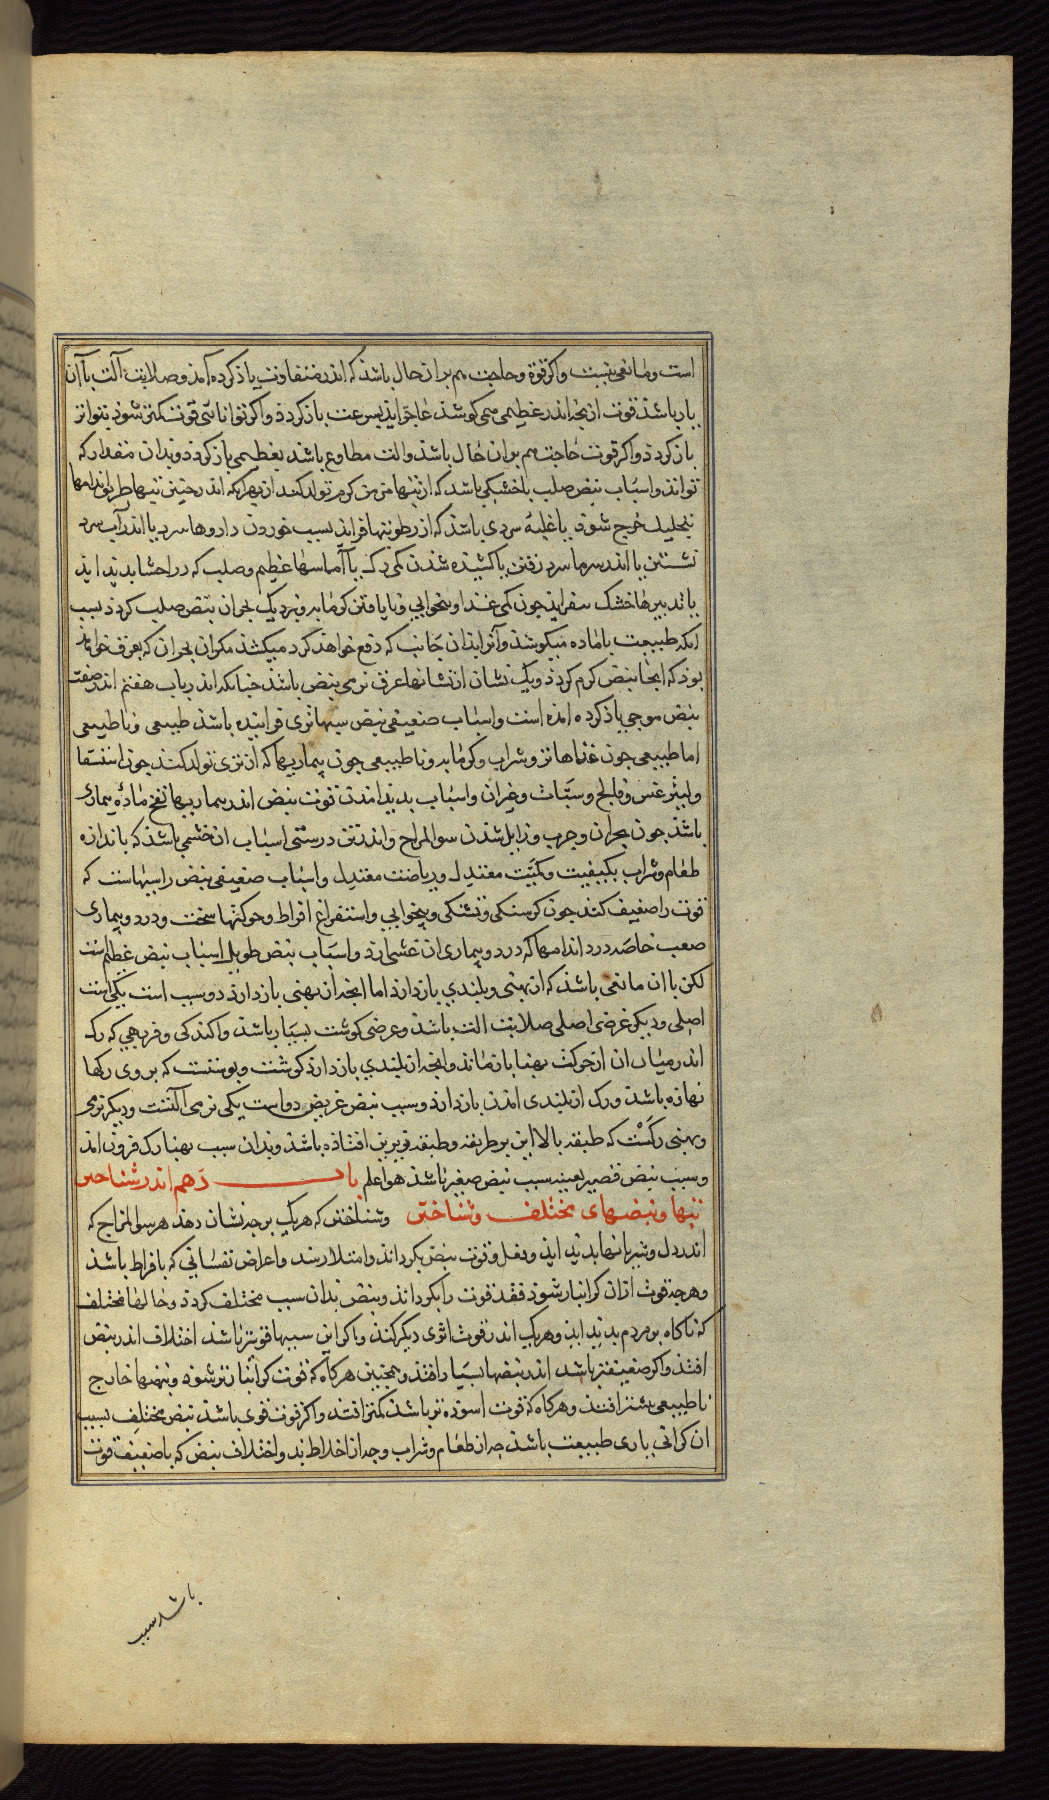 است و مانعی نیست و اکر قوة و حاجت هم بران حال باشذ که اندر متفاوت یاذ کرده آمذ و صلابت آلت با آن
یار باشذ قوت ازنجه اندر عظیمی می کوشذ عاجز ایذ بسرعت باز کردذ و اکر توانائی قوت کمتر شوذ بتواتر
باز کردذ و اکر قوت حاجت هم بران حال باشذ و الت مطاوع باشذ بعظیمی باز کردذ و بدان مقدار که
تواند و اسباب نبض صلب یا خشکی باشد که از تبها من کرم تولد کند از بهر انکه اندر جنین تبها طریق اندامها
بتحلیل خرج شوذ یا غلبهٔ سردی باشذ که از رطوبتها فزاید بسبب خوردن داروها سرد یا اندر آب سرد
نشستن یا اندر سرما سرد رفتن یا کشیده شدن کمی رک یا آماسها عظیم و صلب که در احشا بدید اید
یا تدبیرها خشک سفراید جون کمی غذا و بیخوابی و نایافتن کرمابه و نزدیک بحران نبض صلب کردذ بسبب
انکه طبیعت با ماده میکوشذ و آنرا بذان جانب که دفع خواهذ کرد میکشذ مکر ان بحران که بعرق خواهذ
بوذ که ایجا نبض کرم کردذ و یک نشان از نشانها عرق نرمی نبض باشذ جنانکه اندر باب هفتم اندر صفت
نبض موجی یاذ کرده امذه است و اسباب ضعیفی نبض سیها تری فزاینده باشذ طبیعی و ناطبیعی
اما طبیعی جون غذاها تر و شراب و کرمابه و ناطبیعی جون بیماریها که از تری تولد کند جون استسقا
و لیثرغس و فالج و سبات و غیر ان و اسباب بدید امدن قوت نبض اندر بیماریها نضج مادهٔ بیماری
باشذ جون بحران و جرب و زایل شدن سوالمزاج و اندر تن درستی اسباب ان خشمی باشذ که باندازه
طعام و شراب بکیفیت و کمیت معتدل و ریاضت معتدل و اسباب ضعیفی نبض را سیهاست که
قوت را ضعیف کند جون کرسنکی و تشنکی و بیخوابی و استفراغ افراط و حرکتها سخت و درد و بیماری
صعب خاصه درد اندامها که درد و بیماری ان غشی ارد و اسباب نبض طویل اسباب نبض عظیم است
لکن با ان مانعی باشذ که از بهنی و بلندی باز دارذ اما انجه از بهنی باز دارذ دو سبب است یکی است
اصلی و دیکر عرضی اصلی صلابت الت باشذ و عرضی کوشت بسیار باشذ و اکندکی و فربهی که رک
اندر میان ان از حرکت بهنا باز مانذ و انجه از بلندی باز دارذ کوشت و بوستست که بر وی رکها
نهاذه باشذ و رک از بلندی امذن باز دارذ و سبب نبض عریض دو است یکی نرمی آلتست و دیکر نرمی
و بهنی رکست که طبقه بالاایین بر طبقه و طبقه فروین افتاذه باشذ و بدان سبب بهنا رک فزون امذ
و سبب نبض قصیر بعینه سبب نبض صغیر باشذ هو اعلم باب دهم اندر شناختن
تبها و نبضهای مختلف و شناختن و شناختن که هر یک بر جه نشان دهذ هر سوالمزاج که
اندر دل و شریانها بدید ایذ و بفعل و قوت نبض بکرداند و امتلا رسد و اعراض نفسانی که بافراط باشذ
و هرجه قوت ازان کرانبار شوذ فعذ قوت را بکرداند و نبض بدان سبب مختلف کردذ و حالها مختلف
که ناکاه بر مردم بدید ایذ و هر یک اندر قوت اثری دیکر کنذ و اکر این سببها قویتر باشذ اختلاف اندر نبض
افتذ و اکر ضعیفتر باشد اندر نبضها بسیار افتذ و همجنین هرکاه که قوت کرانبارتر شوذ و نبضها خارج
ناطبیعی بیشتر افتذ و هرکاه که قوت اسوذه تر باشذ کمتر افتد و اکر قوت قوی باشذ نبض مختلف بسبب
ان کرانی باری طبیعت باشذ جه از طعام و شراب و جه از اخلاط بد و اختلاف نبض که با ضعیفی قوت
باشد سبب